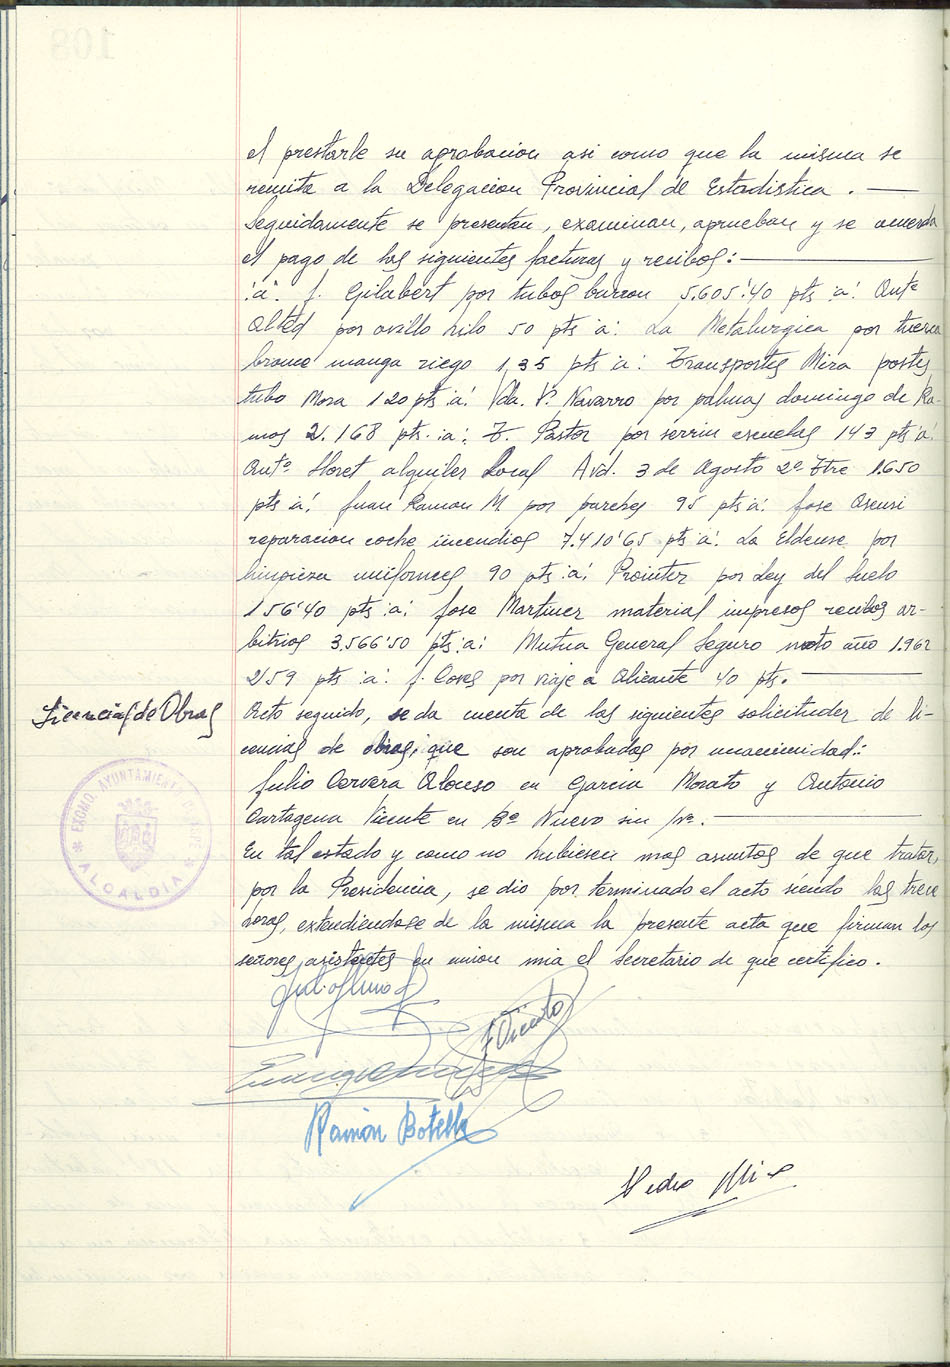 el prestarle su aprobacion asi como que la misma se
remita a la Delegacion Provincial de Estadistica.
Seguidamente se presentan, examinan, aprueban y se acuerda
el pago de los siguientes facturas y recibos:
:a: J. Gilabert por tubos 5.605'40 pts :a: Antº
Alted por ovillo hilo 50 pts :a: La Metalurgica por tuerca
bronce manga riego 135 pts :a: Transportes Mira portes
tubo Mora 120 pts :a: Vda. V. Navarro por palmas domingo de Ra-
mos 2.168 pts. :a: F. Pastor por serrin escuelas 143 pts :a:
Antº Lloret alquiler Local Avd. 3 de Agosto 2º Ttre 1.650
pts :a: Juan Ramon M por 95 pts :a: Jose Asensi
reparacion coche incendios 7.410'65 pts :a: La Eldense por
limpieza uniformes 90 pts :a: Prointer por Ley del Suelo
156'40 pts :a: Jose Martinez material impresos recibos ar-
bitrios 3.566'50 pts :a: Mutua General Seguro moto año 1.962
259 pts :a: J. Cores por viaje a Alicante 40 pts.
Licencias de Obras
Acto seguido, se da cuenta de las siguientes solicitudes de li-
cencias de obras, que son aprobadas por unanimidad:
Julio Cervera Alonso en Garcia Morato y Antonio
Cartagena Vicente en Bº Nuevo sin nº.
En tal estado y como no hubiesen mas asuntos de que tratar,
por la Presidencia, se dio por terminado el acto siendo las trece
horas, extendiendose de la misma la presente acta que firman los
señores asistentes en union mia el Secretario de que certifico.
EXCMO. AYUNTAMIENTO DE ASPE
* ALCALDIA *
F Vicente
Ramón Botella
Pedro Mira